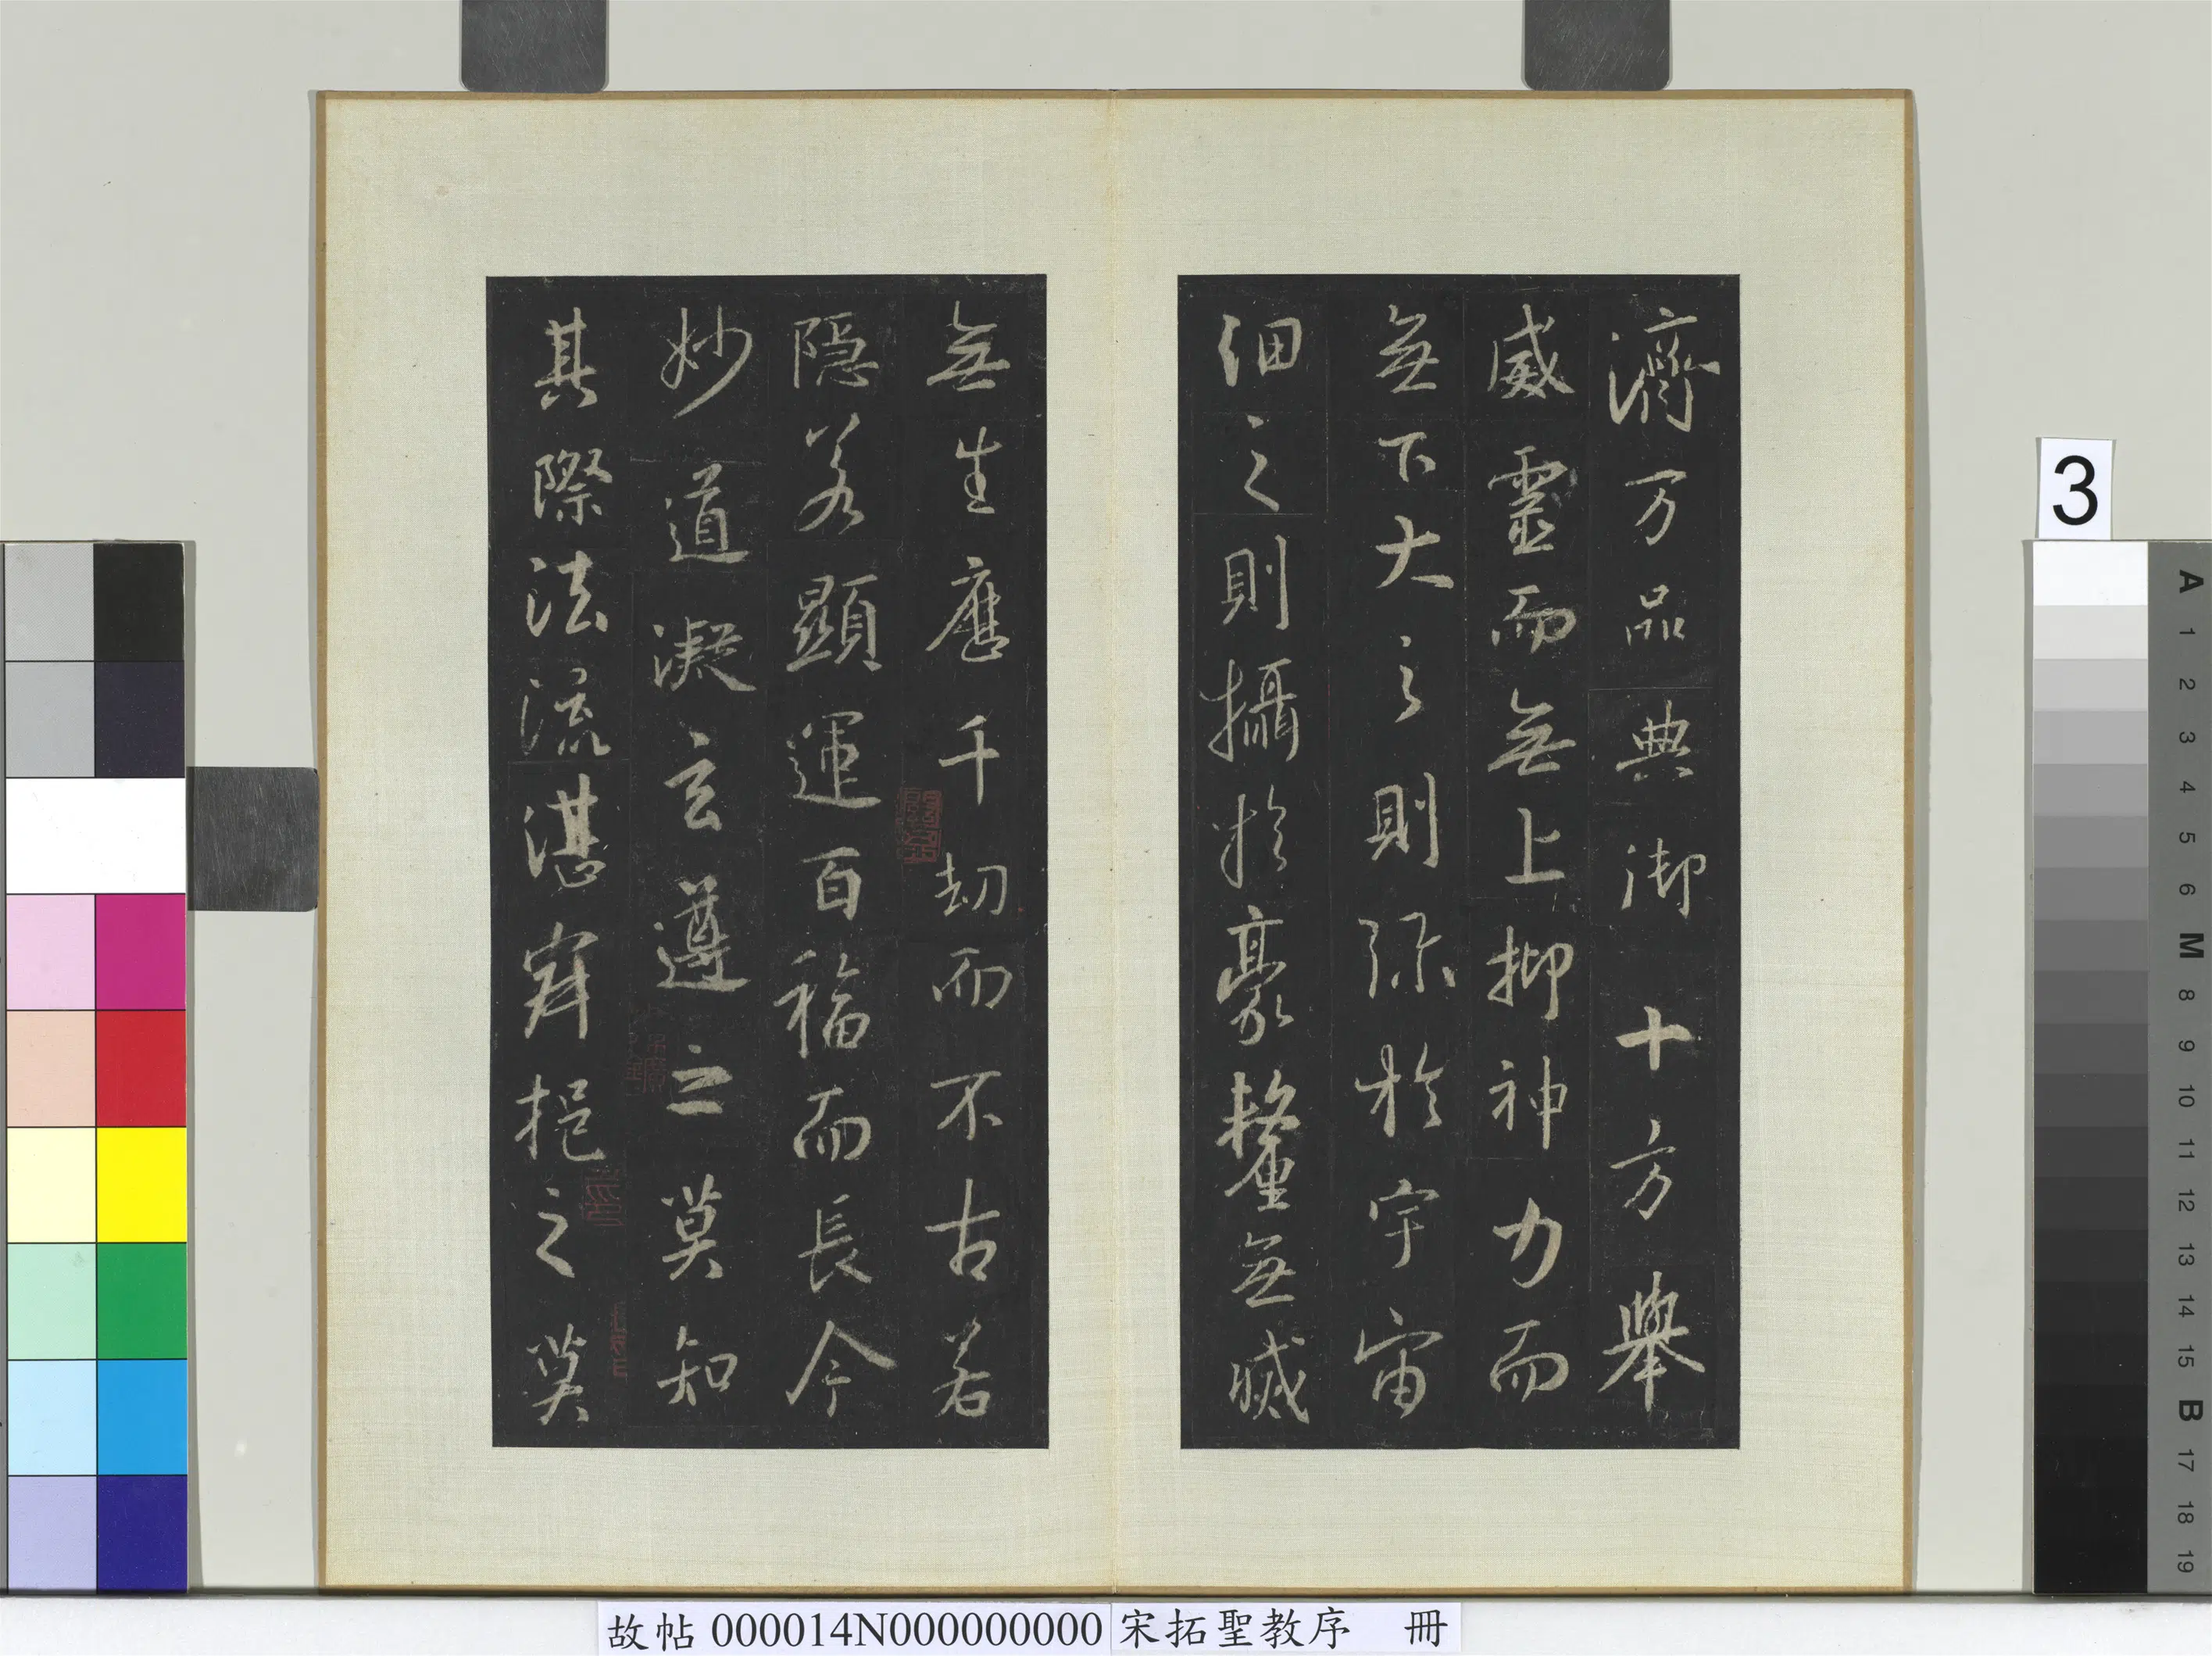 濟万品典御十方舉
威靈而無上抑神力而
無下大之則弥於宇宙
細之則攝於豪釐無滅
無生歷千劫而不古若
隱若顯運百福而長今
妙道凝玄遵之莫知
其際法流湛寂挹之莫
3
A
1
2
3
4
5
6
M
8
9
10
11
12
13
14
15
B
17
18
19
故帖 000014N000000000 宋拓聖教序 冊